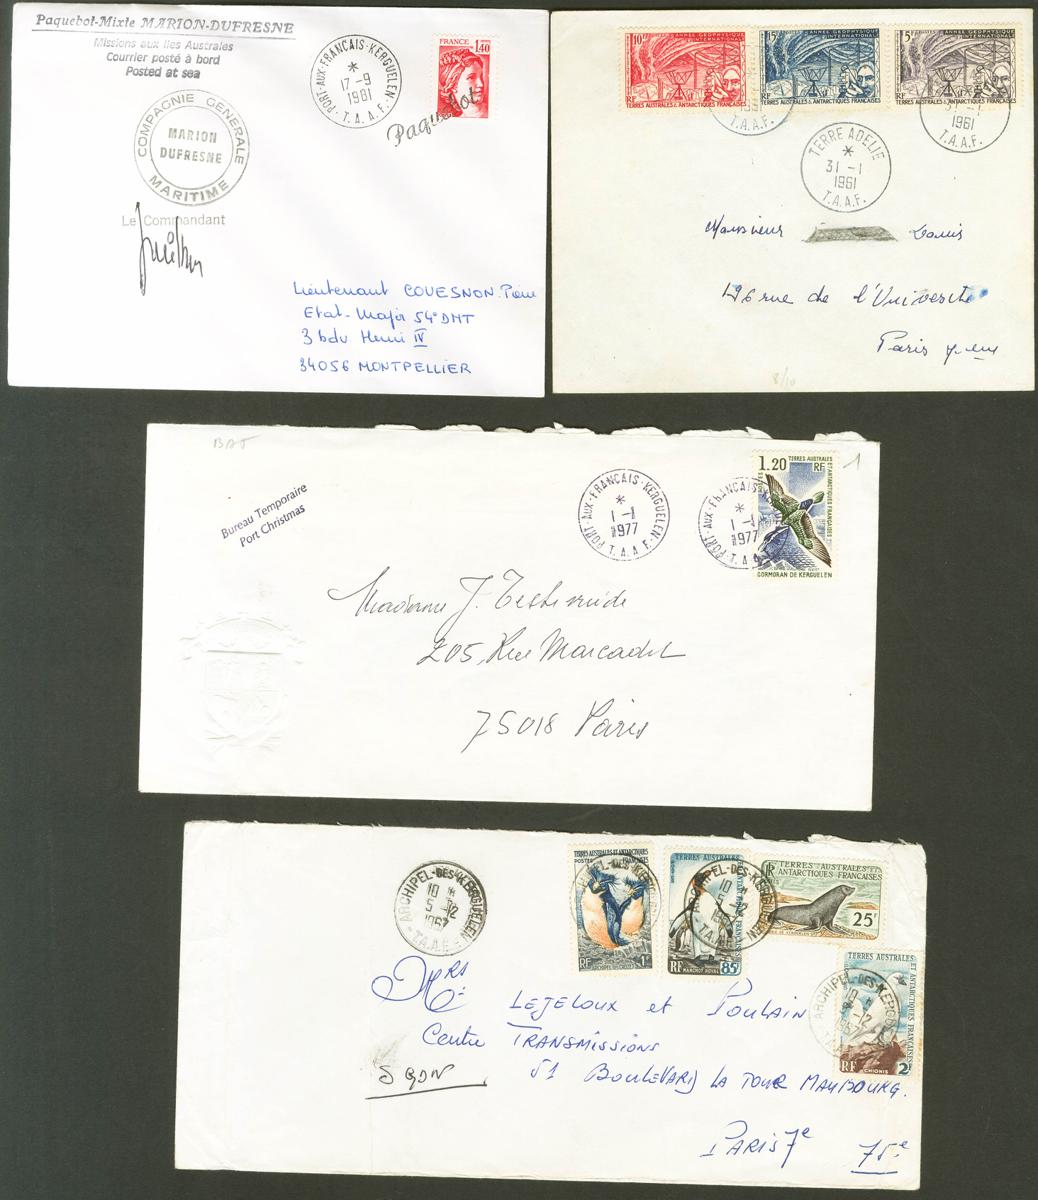 Paquebot-Mixte MARION-DUFRESNE
Missions aux Iles Australes
Courrier posté à bord
Posted at sea
COMPAGNIE GENERALE
MARION
DUFRESNE
MARITIME
Le Commandant
PORT-AUX-FRANCAIS-KERGUELEN
*
17-9
1981
T.A.A.F.
FRANCE
1,40
Paquebot
Lieutenant COUESNON Pierre
Etat-Major 54° DMT
3 bdv Henri IV
34056 MONTPELLIER
10F
ANNÉE GÉOPHYSIQUE
INTERNATIONALE
RF
TERRES AUSTRALES & ANTARCTIQUES FRANÇAISES
15F
ANNÉE GÉOPHYSIQUE
INTERNATIONALE
RF
TERRES AUSTRALES & ANTARCTIQUES FRANÇAISES
5F
ANNÉE GÉOPHYSIQUE
INTERNATIONALE
RF
TERRES AUSTRALES & ANTARCTIQUES FRANÇAISES
1961
T.A.A.F.
31-1
1961
T.A.A.F.
TERRE ADELIE
*
31-1
1961
T.A.A.F.
Monsieur
Louis
196 rue de l'Université
Paris 7eme
8/10
BAT
1
Bureau Temporaire
Port Christmas
PORT-AUX-FRANCAIS-KERGUELEN
*
1-1
1977
T.A.A.F.
PORT-AUX-FRANCAIS-KERGUELEN
*
1-1
1977
T.A.A.F.
1.20
TERRES AUSTRALES ET ANTARCTIQUES FRANÇAISES
RF
POSTES
CORMORAN DE KERGUELEN
Madame J.
205, Rue Marcadet
75018 Paris
ARCHIPEL-DES-KERGUELEN
10 H
5-12
1967
T.A.A.F.
TERRES AUSTRALES ET ANTARCTIQUES
POSTES
FRANÇAISES
RF
1F
TERRES AUSTRALES
ET ANTARCTIQUES FRANÇAISES
RF
MANCHOT ROYAL
85F
ARCHIPEL-DES-KERGUELEN
10 H
5-12
1967
T.A.A.F.
RF
TERRES AUSTRALES ET
ANTARCTIQUES FRANÇAISES
25F
TERRES AUSTRALES ET
ANTARCTIQUES FRANÇAISES
RF
CHIONIS
2F
ARCHIPEL-DES-KERGUELEN
10 H
1967
MRS
LEJELOUX et POULAIN
Centre TRANSMISSIONS
51 BOULEVARD LA TOUR MAUBOURG.
PARIS 7e
75e